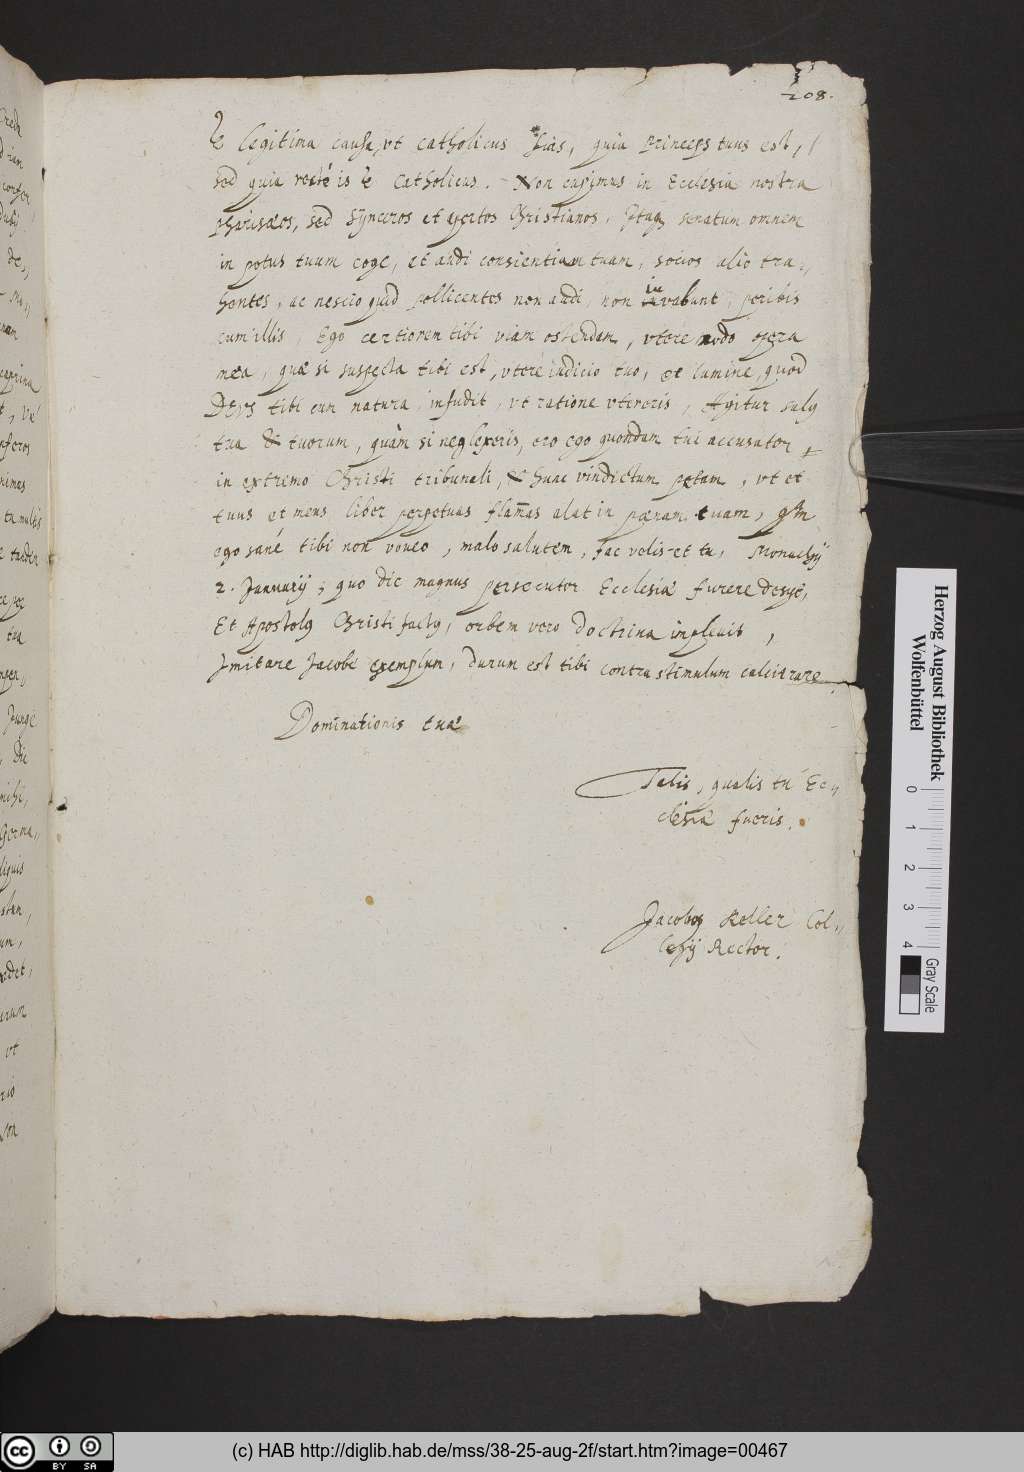 208.
e legitima causa, vt catholicus fias, quia princeps tuus est,
sed quia recté is e Catholicus. Non cupimus in Ecclesia nostra
Pharisæos, sed synceros et apertos Christianos. Itaq senatum omnem
in potus tuum coge, et audi consientiam tuam, socios alio tra-,,
hentes, ac nescio quid pollicentes non audi, non iuvabunt, peribis
cum illis, Ego certiorem tibi viam ostendam, vtere modo opera
mea, quæ si suspecta tibi est, vtere iudicio tuo, et lumine, quod
DEVS tibi cum natura infudit, vt ratione vtereris, Agitur salus
tua & tuorum, quàm si neglexeris, ero ego quondam tui accusator
in extremo Christi tribunali, & hanc vindictam petam, vt et
tuus et meus liber perpetuas flam̄as alat in pœnam tuam, qm
ego sané tibi non voueo, malo salutem, fac velis et tu, Monachij
2. Januarij; quo die magnus persecutor Ecclesiæ furere desijt,
Et Apostolus Christi factus, orbem vero doctrina impleuit,
Imitare Jacobe exemplum, durum est tibi contra stimulum calcitrare
Dominationis tuæ
Talis, qualis tu Ec,,
clesiæ fueris.
Jacobus Keller Col,,
legij Rector.
Herzog August Bibliothek
Wolfenbüttel
0 1 2 3 4
Gray Scale
cc BY SA
(c) HAB http://diglib.hab.de/mss/38-25-aug-2f/start.htm?image=00467